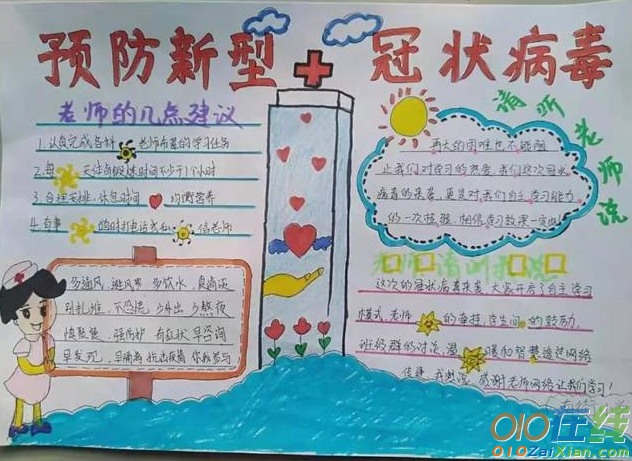 预防新型冠状病毒
老师的几点建议
1.认真完成各科老师布置的学习任务
2.每天体育锻炼时间不少于1个小时
3.合理安排,休息时间 均衡营养
4.有事 随时打电话或私信老师
多通风,避风寒 多饮水,食清淡
别扎堆,不恐慌 少外出 少熬夜
慎聚餐,强防护 有症状 早咨询
早发现,早隔离 抗击疫情 你我参与
请听老师说
再大的困难也不能阻
止我们对学习的热爱,我们这次冠状
病毒的来袭,更是对我们自主学习能力
的一次检验,相信学习效果一定
老师请听我说
这次的冠状病毒来袭,大家开启了自主学习
模式,老师的
的鼓励,
班级群的讨论,温暖和智慧通过网络
传递,我想说,感谢老师网络让我们学习!
010在线
010ZaiXian.com